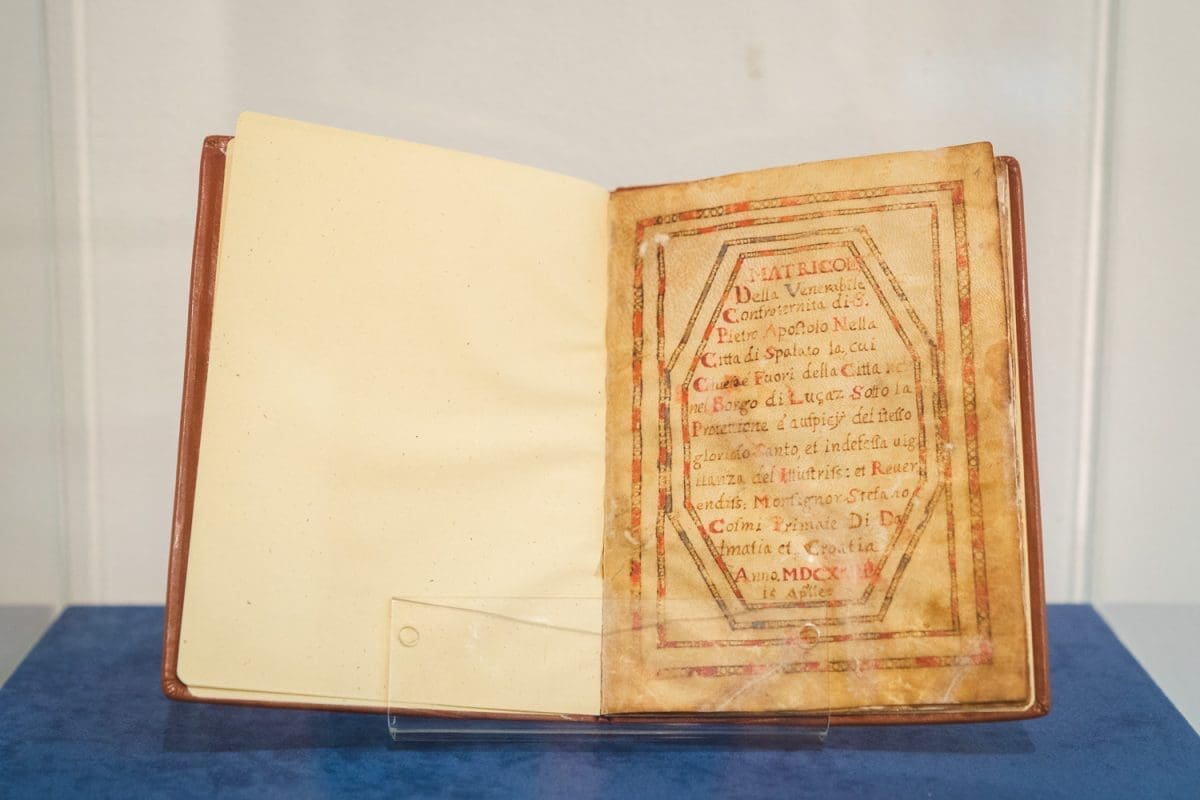 MATRICOLA
Della Venerabile
Confroternita di S.
Pietro Apostolo Nella
Citta di Spalato la, cui
Chiesae Fuori della Citta ne
nel Borgo di Luçaz Sotto la
Protettione e auspicÿ del stesso
glorioso Santo, et indefessa uig
ilanza del Illustriss: et Rever
endiss: Monsignor Stefano
Cosmi Primate Di Da
lmatia et Croatia
Anno,